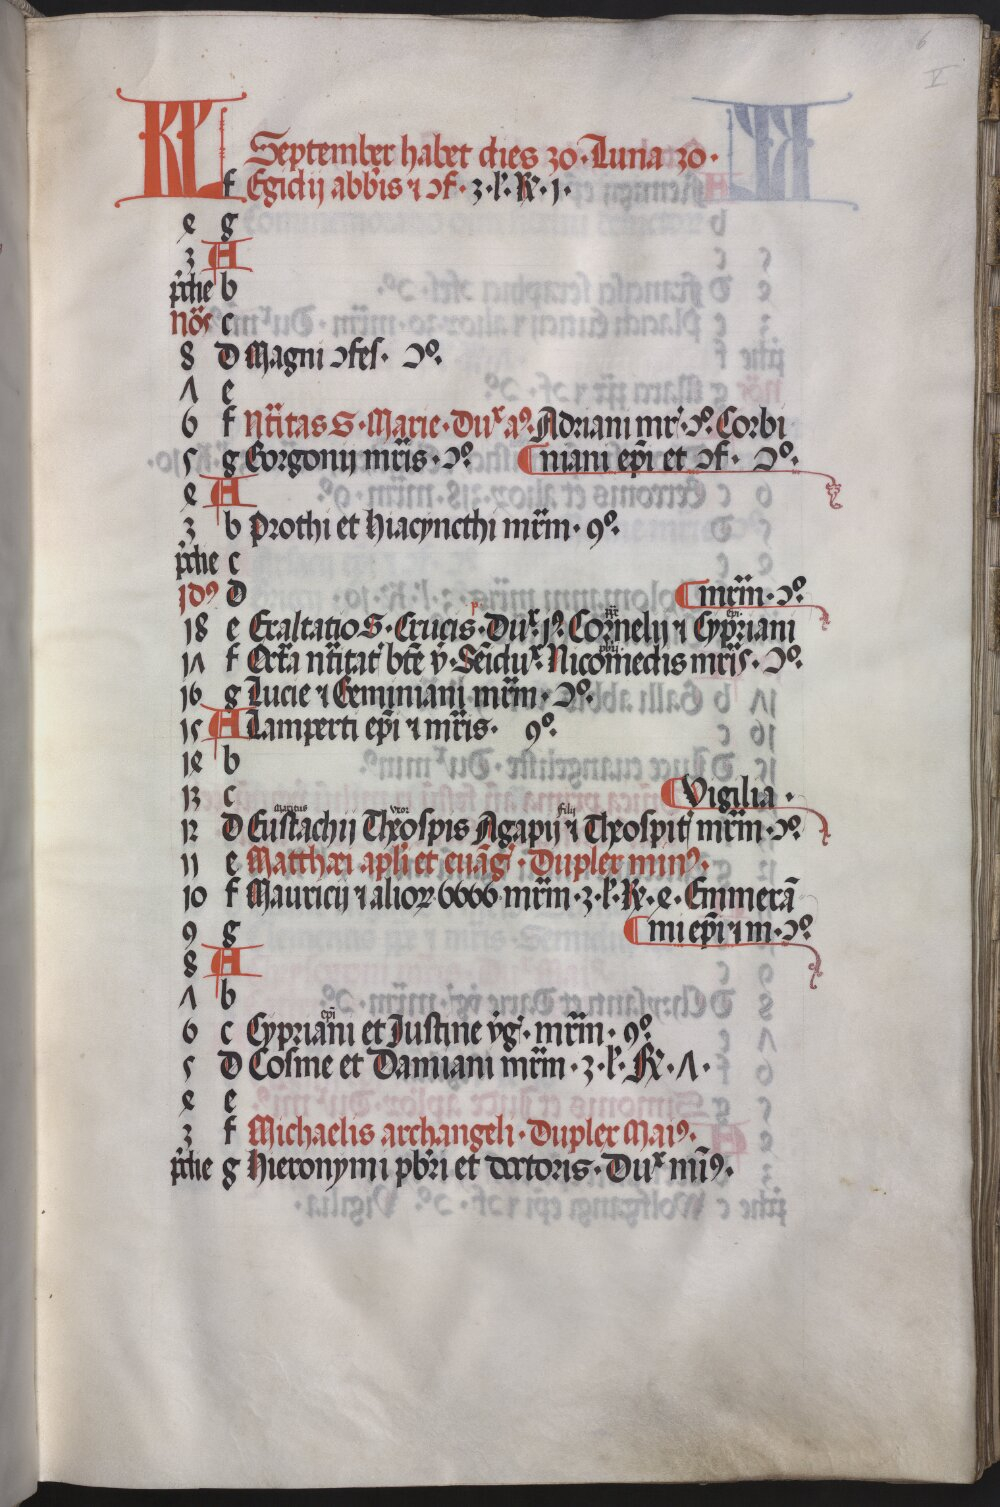 6
V
KL September habet dies 30 · Luna 30 ·
f Egidij abb̄is ⁊ ɔf · 3 · k̓ · R̷ · 1 ·
e g
3 A
p̓die b
Nōs c
8 D Magni ɔfes · ɔ⁹ ·
Λ e
6 f Nt̄itas S · Marie · Duˣ a⁹ · Adriani mr̄ · ɔ⁹ · Corbi
5 g Gorgonij mr̄is · ɔ⁹ · niani ep̄i et ɔf · ɔ⁹ ·
e A
3 b Prothi et Hiacyncthi mr̄m · 9⁹ ·
p̓die c
Id⁹ D mr̄m · ɔ⁹
18 e Exaltatio S · Crucis · Duˣ · j⁹ · Cornelij pp̄ ⁊ Cypriani epi
1Λ f Oct̄a nt̄itat̓ bt̄e v̄ · Sēiduˣ · Nicomedis pbrj mr̄is · ɔ⁹ ·
16 g Lucie ⁊ Geminiani mr̄m · ɔ⁹ ·
15 A Lamperti ep̄i ⁊ mr̄is · 9⁹ ·
1e b
13 c Vigilia ·
12 D Eustachij Maritus Thospis vxor Agapij ⁊ filij Thospit̓ mr̄m · ɔ⁹
11 e Matthæi apl̓i et euāg̓ · Duplex min⁹ ·
10 f Mauricij ⁊ alioꝝ 6666 mr̄m · 3 · k̓ · R̷ · e · Emmerā
9 g mi ep̄i ⁊ m · ɔ⁹ ·
8 A
Λ b
6 c Cypriani epi et Justine v̄g̓ · mr̄m · 9⁹ ·
5 D Cosme et Damiani mr̄m · 3 · k̓ · R̷ · Λ ·
e e
3 f Michaelis archangeli · Duplex Mai⁹ ·
p̓die g Hieronymi pb̄ri et doctoris · Duˣ mī⁹ ·